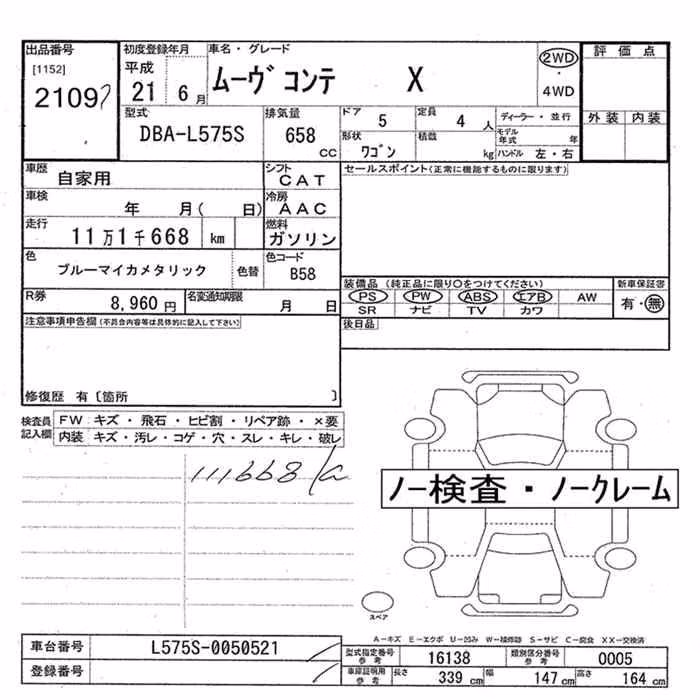 出品番号 初度登録年月 車名・グレード 2WD 評価点
[1152] 平成 ムーヴ コンテ X ・
2109 21 6月 4WD
型式 排気量 ドア 5 定員 4人 ディーラー・並行 外装 内装
DBA-L575S 658 cc 形状 ワゴン 積載 kg モデル年式 年
ハンドル 左・右
車歴 自家用 シフト CAT セールスポイント(正常に機能するものに限ります)
車検 年 月( 日) 冷房 AAC
走行 11万1千668 km 燃料 ガソリン
色 ブルーマイカメタリック 色替 色コード B58
装備品 (純正品に限り○をつけてください) 新車保証書
R券 8,960円 名変通知期限 月 日 PS PW ABS エアB AW 有・無
SR ナビ TV カワ
注意事項申告欄(不具合内容等は具体的に記入して下さい) 後日品
修復歴 有〔箇所 〕
検査員記入欄 FW キズ・飛石・ヒビ割・リペア跡・×要
内装 キズ・汚レ・コゲ・穴・スレ・キレ・破レ
111668
ノー検査・ノークレーム
スペア
A-キズ E-エクボ U-凹み W-補修跡 S-サビ C-腐食 XX-交換済
車台番号 L575S-0050521 型式指定番号 参考 16138 類別区分番号 参考 0005
登録番号 車庫証明用 参考 長さ 339cm 幅 147cm 高さ 164cm